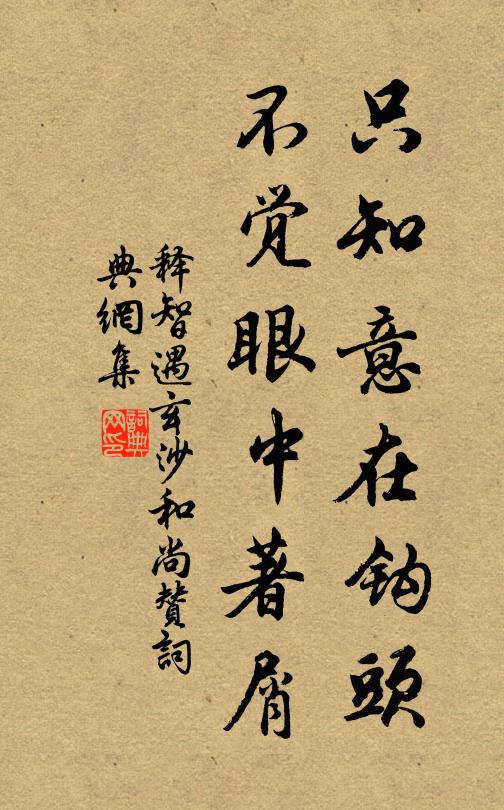 只知意在钩頭
不觉眼中著屑
释智遇玄沙和尚赞詞
典網集
詞典网印